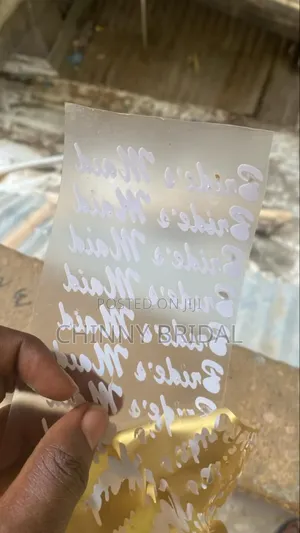 Bride's Maid
Bride's Maid
Bride's Maid
Bride's Maid
Bride's Maid
Bride's Maid
Bride's M
POSTED ON JIJI
CHINNY BRIDAL